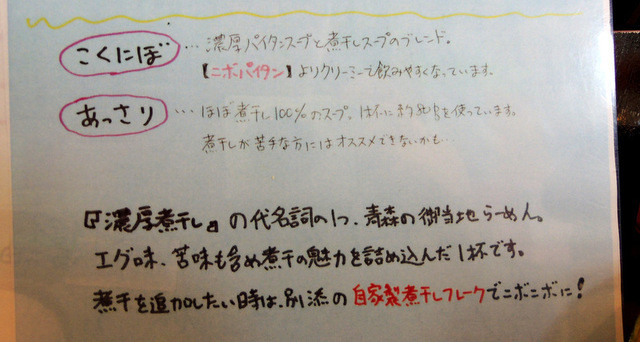 こくにぼ …濃厚パイタンスープと煮干しスープのブレンド。
【ニボパイタン】よりクリーミーで飲みやすくなっています。
あっさり …ほぼ煮干し100%のスープ。1杯に約 を使っています。
煮干しが苦手な方にはオススメできないかも…
『濃厚煮干し』の代名詞の1つ、青森の御当地らーめん。
エグ味、苦味も含め煮干の魅力を詰め込んだ1杯です。
煮干を追加したい時は、別添の自家製煮干しフレークでニボニボに!